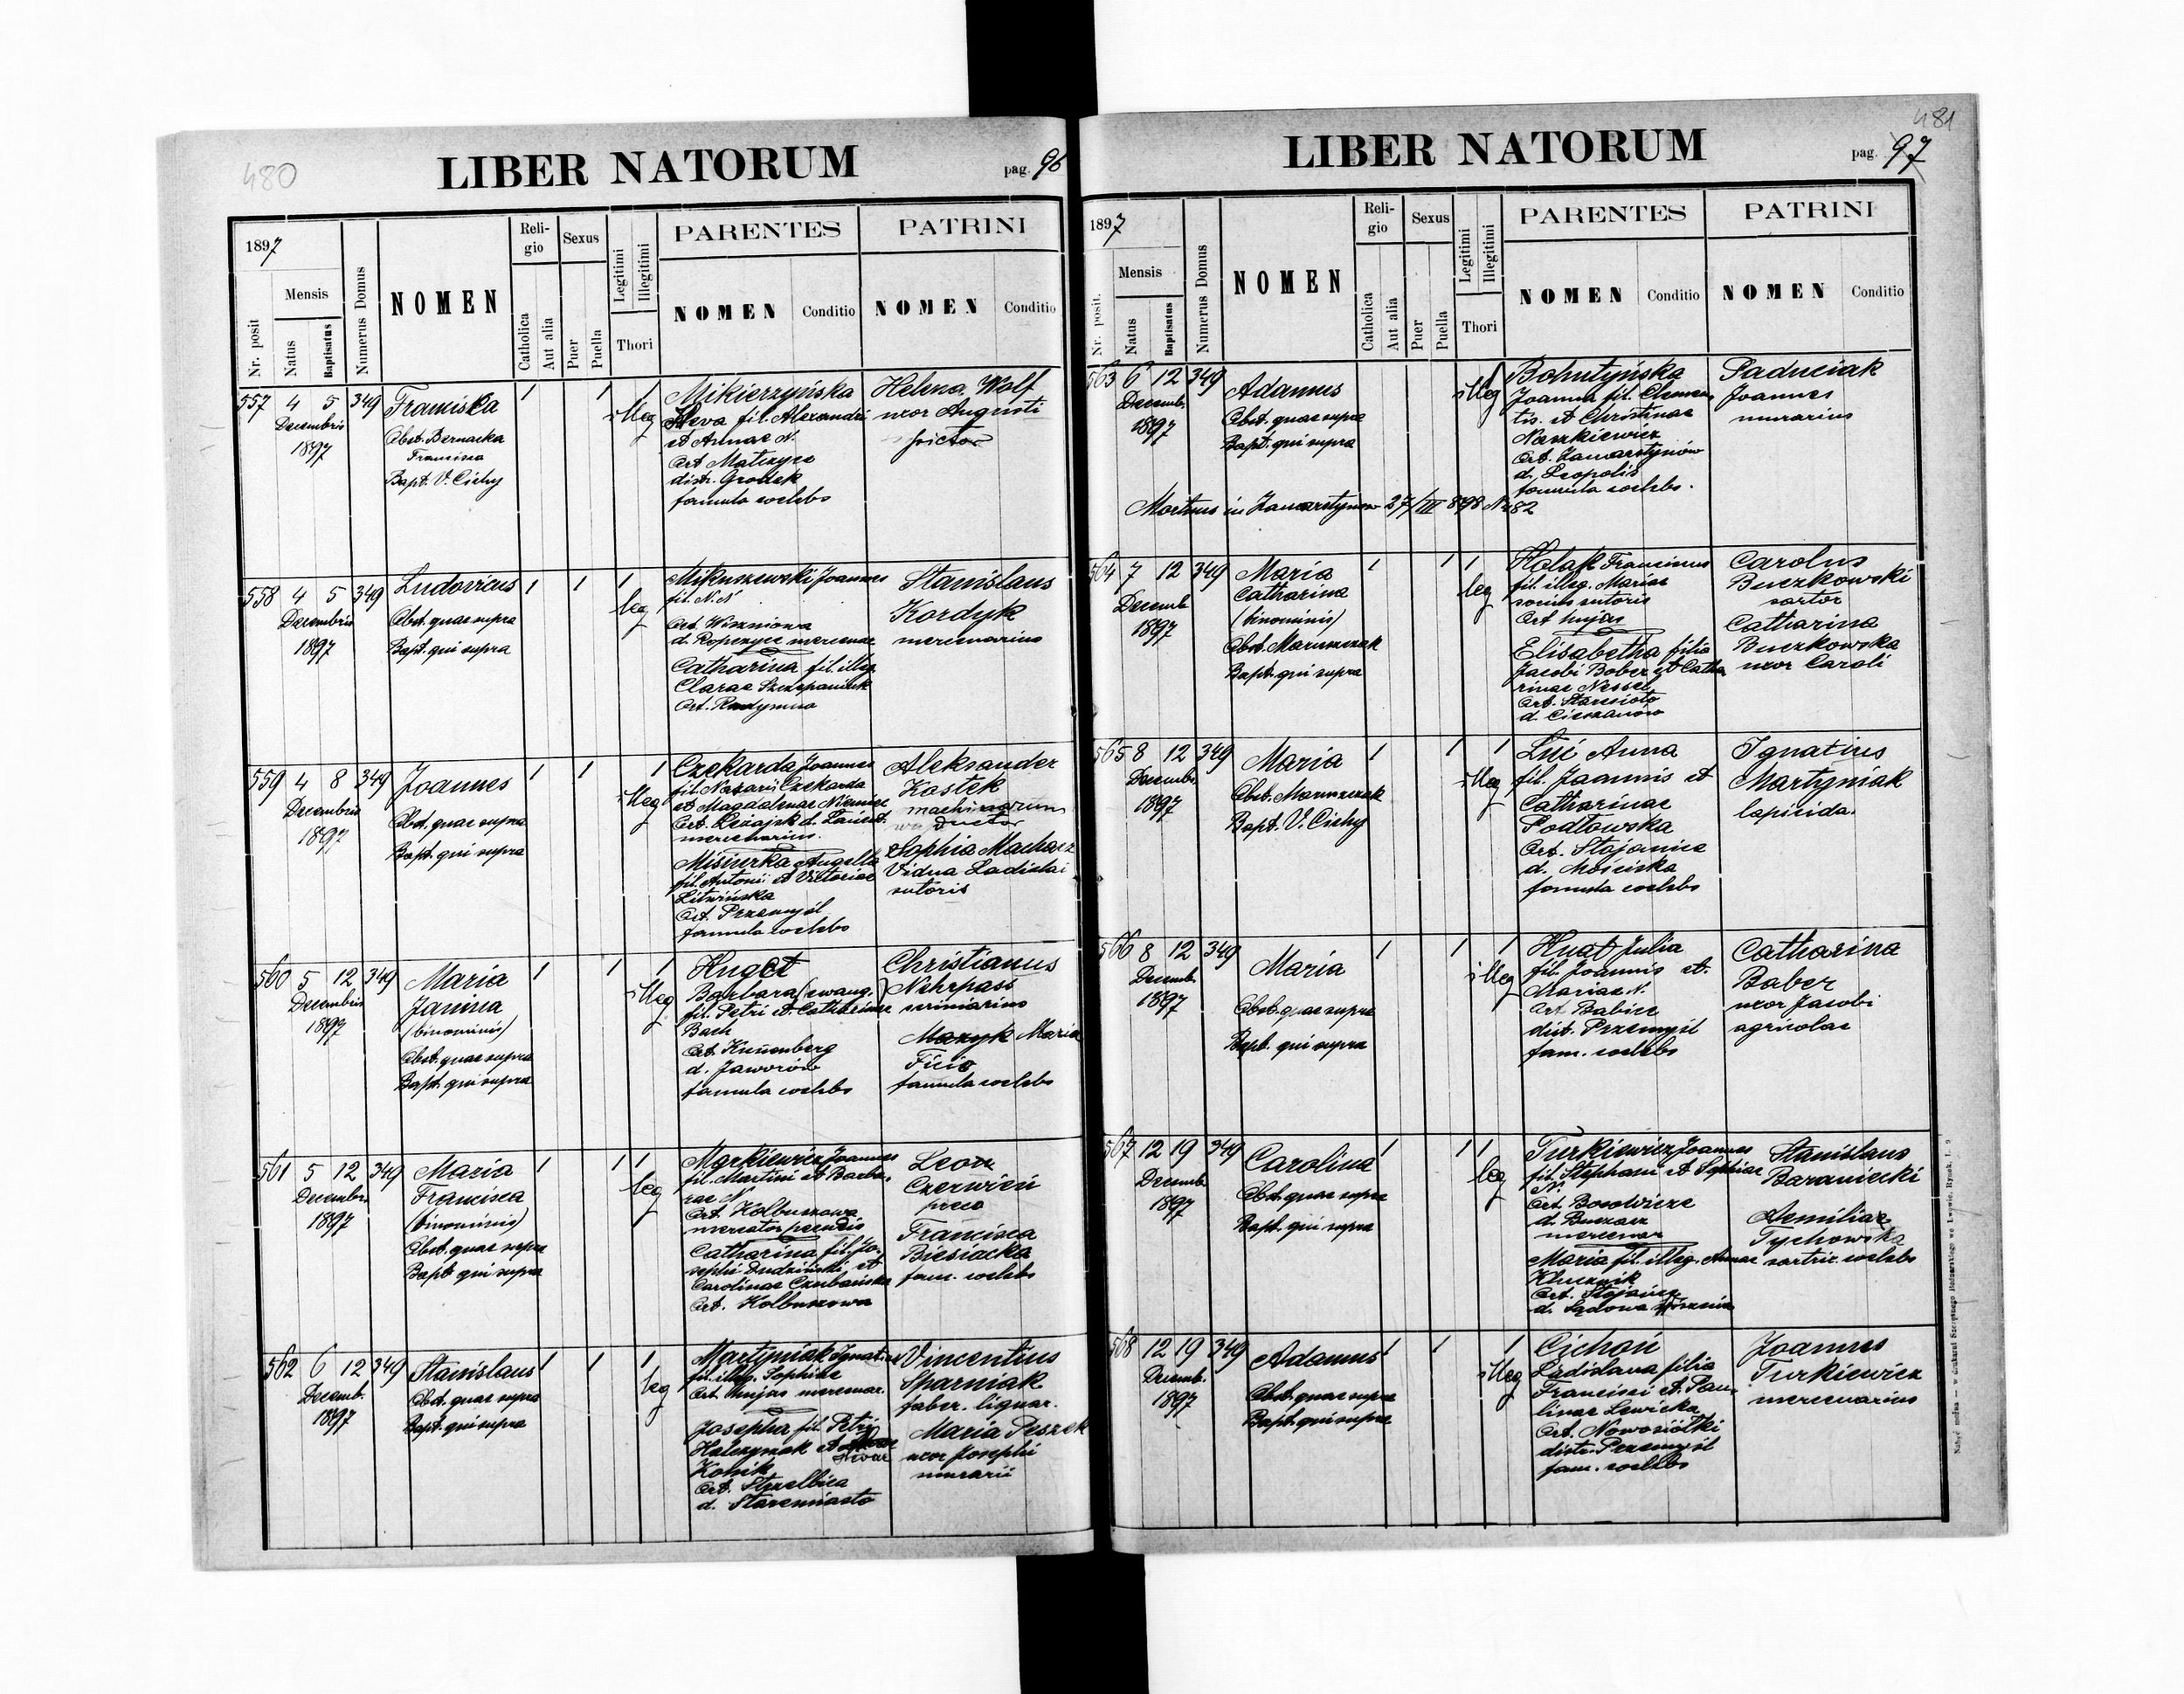 480
LIBER NATORUM
pag. 96
1897
Nr. posit
Mensis
Natus
Baptisatus
Numerus Domus
NOMEN
Reli-
gio
Catholica
Aut alia
Sexus
Puer
Puella
Legitimi
Illegitimi
Thori
PARENTES
NOMEN
Conditio
PATRINI
NOMEN
Conditio
557 4 5 349
Decembris
1897
Francisca
Obst. Bernacka
Francisca
Bapt. V. Cichy
1 1 1
illeg
Mikierzyńska
Heva fil. Alexandri
et Annae N.
Ort Matczyce
distr. Grodek
famula coelebs
Helena Wolf
uxor Augusti
pictor
558 4 5 349
Decembris
1897
Ludovicus
Obst. quae supra
Bapt. qui supra
1 1 1
leg
Mikuszewski Joannes
fil. N. N.
Ort. Wiszniowa
d. Ropczyce mercenar
Catharina fil. illeg
Clarae Szczepaniuk
Ort. Radymno
Stanislaus
Kordyk
mercenarius
559 4 8 349
Decembris
1897
Joannes
Obst. quae supra
Bapt. qui supra
1 1 1
illeg
Czekarda Joannes
fil. Nazarii Czekarda
et Magdalenae Niemiec
Ort. Leżajsk d. Łańcut.
mercenarius.
Misiurka Angella
fil. Antonii et Victoriae
Litwińska
Ort. Przemyśl
famula coelebs
Aleksander
Kostek
machinarum
ductor
Sophia Machacz
Vidua Ladislai
sutoris
560 5 12 349
Decembris
1897
Maria
Janina
(binominis)
Obst. quae supra
Bapt. qui supra
1 1 1
illeg
Hugel
Barbara (ewang.)
fil. Petri et Catharinae
Bach
Ort. Kunenberg
d. Jaworów
famula coelebs
Christianus
Nehrpass
scriniarius
Mazyk Maria
famula coelebs
561 5 12 349
Decembr.
1897
Maria
Francisca
(binominis)
Obst. quae supra
Bapt. qui supra
1 1 1
leg
Markiewicz Joannes
fil. Martini et Barba,
rae N
Ort. Kolbuszowa
mercator pecudis
Catharina fil. Jo,
sephi Dudziński et
Carolinae Czurbańska
Ort. Kolbuszowa
Leon
Czerwień
preco
Francisca
Biesiacka
fam. coelebs
562 6 12 349
Decemb.
1897
Stanislaus
Obst. quae supra
Bapt. qui supra
1 1 1
leg
Martyniak Ignatius
fil. illeg. Sophiae
Ort. hujas mercenar.
Josepha fil. Petri
Halczynak et
Hevae
Konik
Ort. Strzelbica
d. Staremiasto
Vincentius
Sparniak
faber. lignar.
Maria Peszek
uxor Josephi
murarii
481
LIBER NATORUM
pag. 97
1897
Nr. posit.
Mensis
Natus
Baptisatus
Numerus Domus
NOMEN
Reli-
gio
Catholica
Aut alia
Sexus
Puer
Puella
Legitimi
Illegitimi
Thori
PARENTES
NOMEN
Conditio
PATRINI
NOMEN
Conditio
563 6 12 349
Decemb.
1897
Adamus
Obst. quae supra
Bapt. qui supra
illeg
Bohutyńska
Joanna fil. Clemen,
tis et Christinae
Naszkiewicz
Ort. Zamarstynów
d. Leopolis
famula coelebs.
Paduciak
Joannes
murarius
Mortuus in Zamarstynow 27/III 898 Nr 82
564 7 12 349
Decemb
1897
Maria
Catharina
(binominis)
Obst. Maruszczak
Bapt. qui supra
1 1 1
leg
Holak Franciscus
fil. illeg. Mariae
socius sutoris
Ort hujas
Elisabetha filia
Jacobi Bober et Catha
rinae Nessel
Ort. Staresioło
d. Cieszanów
Carolus
Buczkowski
sartor
Catharina
Buczkowska
uxor Caroli
565 8 12 349
Decemb.
1897
Maria
Obst. Maruszczak
Bapt. V. Cichy
1 1 1
illeg
Lui Anna
fil. Joannis et
Catharinae
Podłowska
Ort. Stojanice
d. Mościska
famula coelebs
Ignatius
Martyniak
lapicida.
566 8 12 349
Decemb.
1897
Maria
Obst. quae supra
Bapt. qui supra
1 1 1
illeg
Hnat Julia
fil. Joannis et
Mariae N.
Ort Babice
dist. Przemyśl
fam. coelebs
Catharina
Baber
uxor Jacobi
agricolae
567 12 19 349
Decemb
1897
Carolina
Obst. quae supra
Bapt. qui supra
1 1 1
leg
Turkiewicz Joannes
fil. Stephani et Sophiae
N.
Ort Bosowicze
d. Buczacz
mercenar
Maria fil. illeg. Annae
Klucznik
Ort. Stojańce
d. Sądowa Wisznia
Stanislaus
Baraniecki
Aemiliae
Tychowska
sartrix coelebs
568 12 19 349
Decemb.
1897
Adamus
Obst. quae supra
Bapt. qui supra
1 1 1
illeg
Cichoń
Ladislava filia
Francisci et Pau,
linae Lewicka
Ort. Nowosiółki
distr. Przemyśl
fam. coelebs
Joannes
Turkiewicz
mercenarius